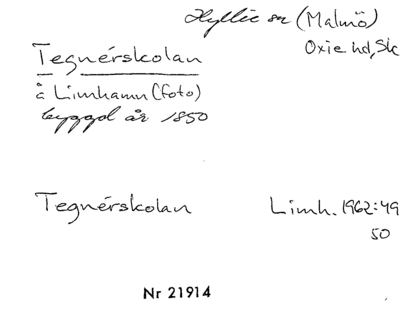 Hyllie sn (Malmö)
Oxie hd, Sk
Tegnérskolan
å Limhamn (foto)
byggd år 1850
Tegnérskolan Limh. 1962:49
50
Nr 21914